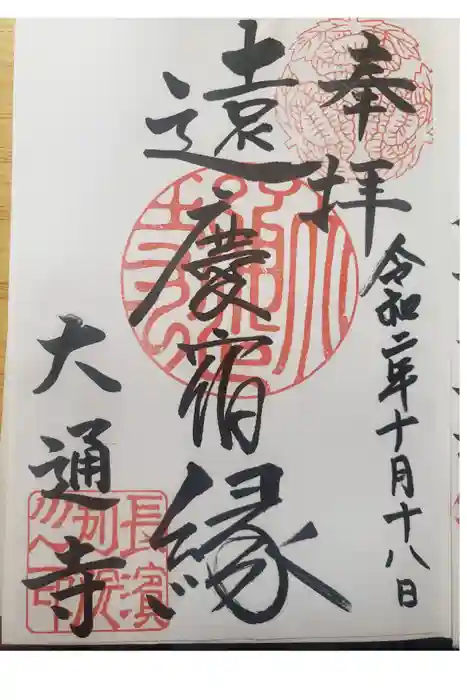 奉拝
令和二年十月十八日
遠慶宿縁
大通寺
長濱
別院